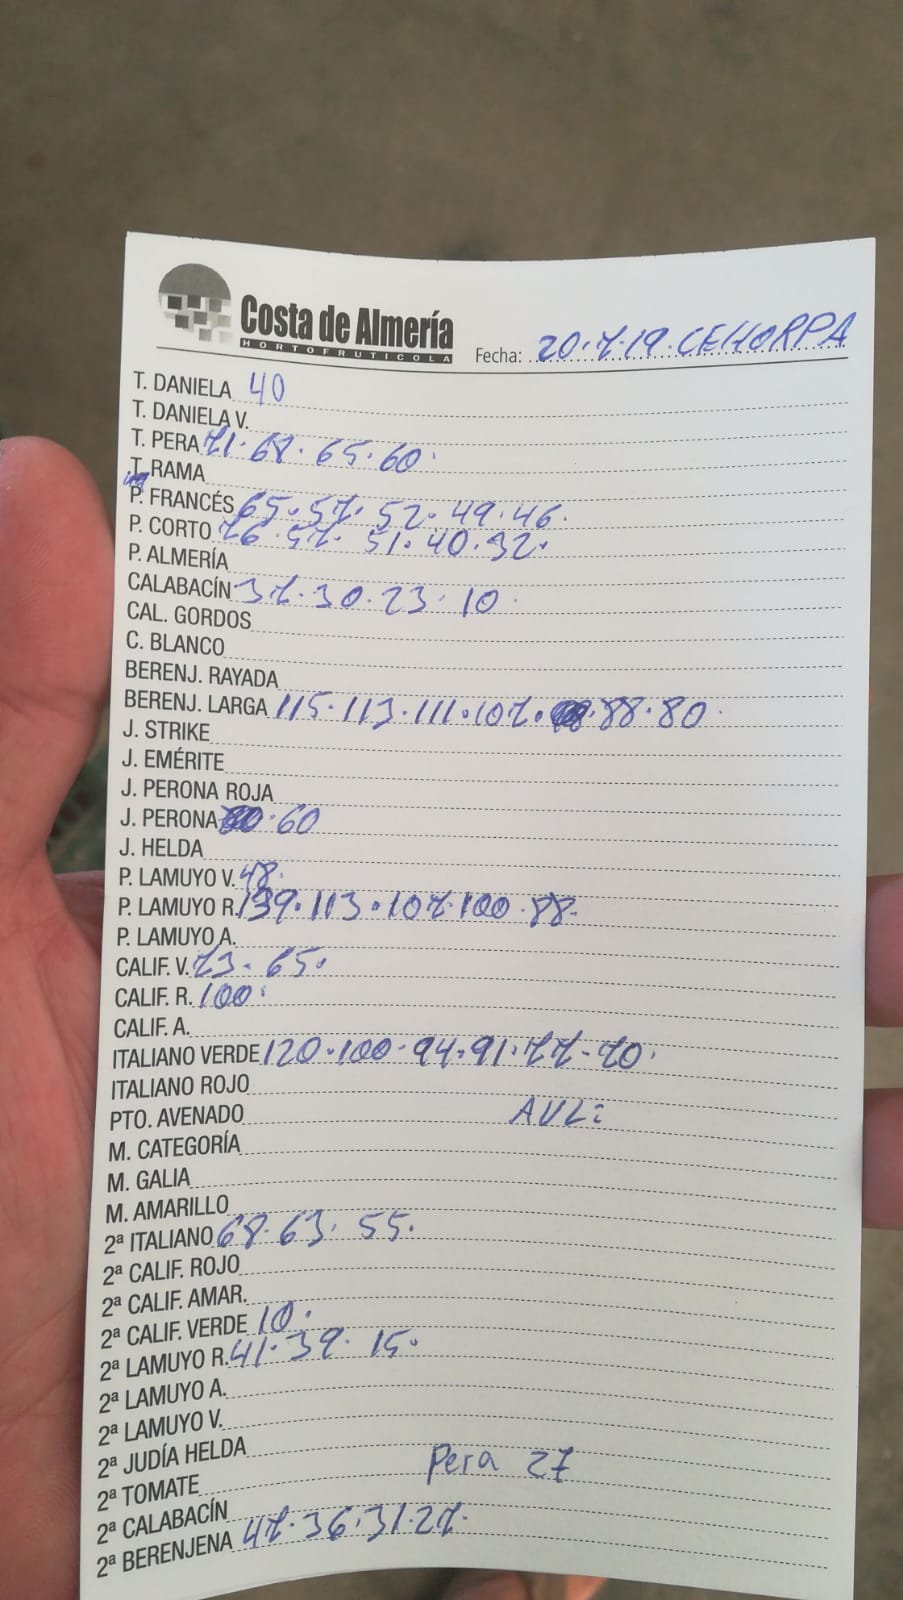 Costa de Almería
HORTOFRUTICOLA
Fecha: 20.7.19.CEHORPA
T. DANIELA 40
T. DANIELA V.
T. PERA 71. 68. 65. 60.
T. RAMA
P. FRANCÉS 65. 57. 52. 49. 46.
P. CORTO 76. 57. 51. 40. 32.
P. ALMERÍA
CALABACÍN 37. 30. 23. 10.
CAL. GORDOS
C. BLANCO
BERENJ. RAYADA
BERENJ. LARGA 115. 113. 111. 107. 88. 80.
J. STRIKE
J. EMÉRITE
J. PERONA ROJA
J. PERONA 60
J. HELDA
P. LAMUYO V. 48.
P. LAMUYO R. 139. 113. 107. 100. 88.
P. LAMUYO A.
CALIF. V. 73. 65.
CALIF. R. 100.
CALIF. A.
ITALIANO VERDE 120. 100. 94. 91. 77. 70.
ITALIANO ROJO
PTO. AVENADO
M. CATEGORÍA
M. GALIA
M. AMARILLO
2ª ITALIANO 68. 63. 55.
2ª CALIF. ROJO
2ª CALIF. AMAR.
2ª CALIF. VERDE 10.
2ª LAMUYO R. 41. 39. 15.
2ª LAMUYO A.
2ª LAMUYO V.
2ª JUDÍA HELDA
2ª TOMATE Pera 27
2ª CALABACÍN
2ª BERENJENA 47. 36. 31. 27.